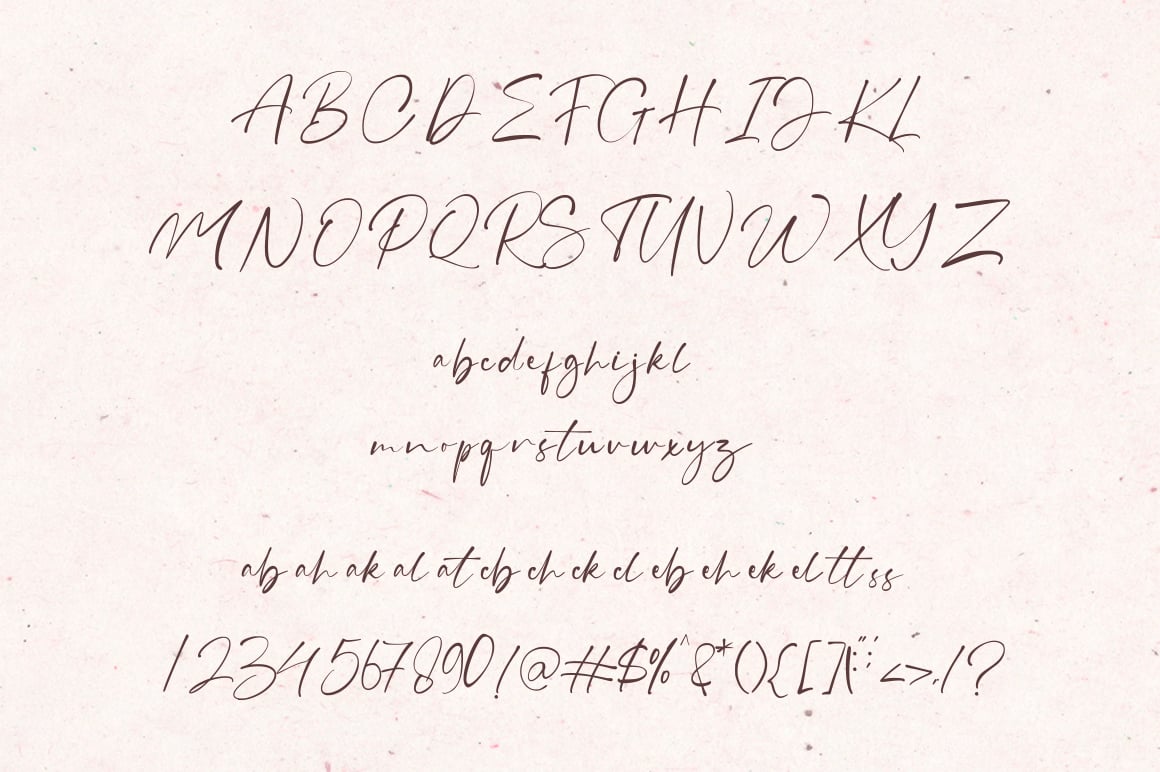 ABCDEFGHIJKL
MNOPQRSTUVWXYZ
abcdefghijkl
mnopqrstuvwxyz
ab ah ak al at cb ch ck cl eb eh ek el tt ss
1234567890!@#$%^&*(){[]|:"';<>,./?